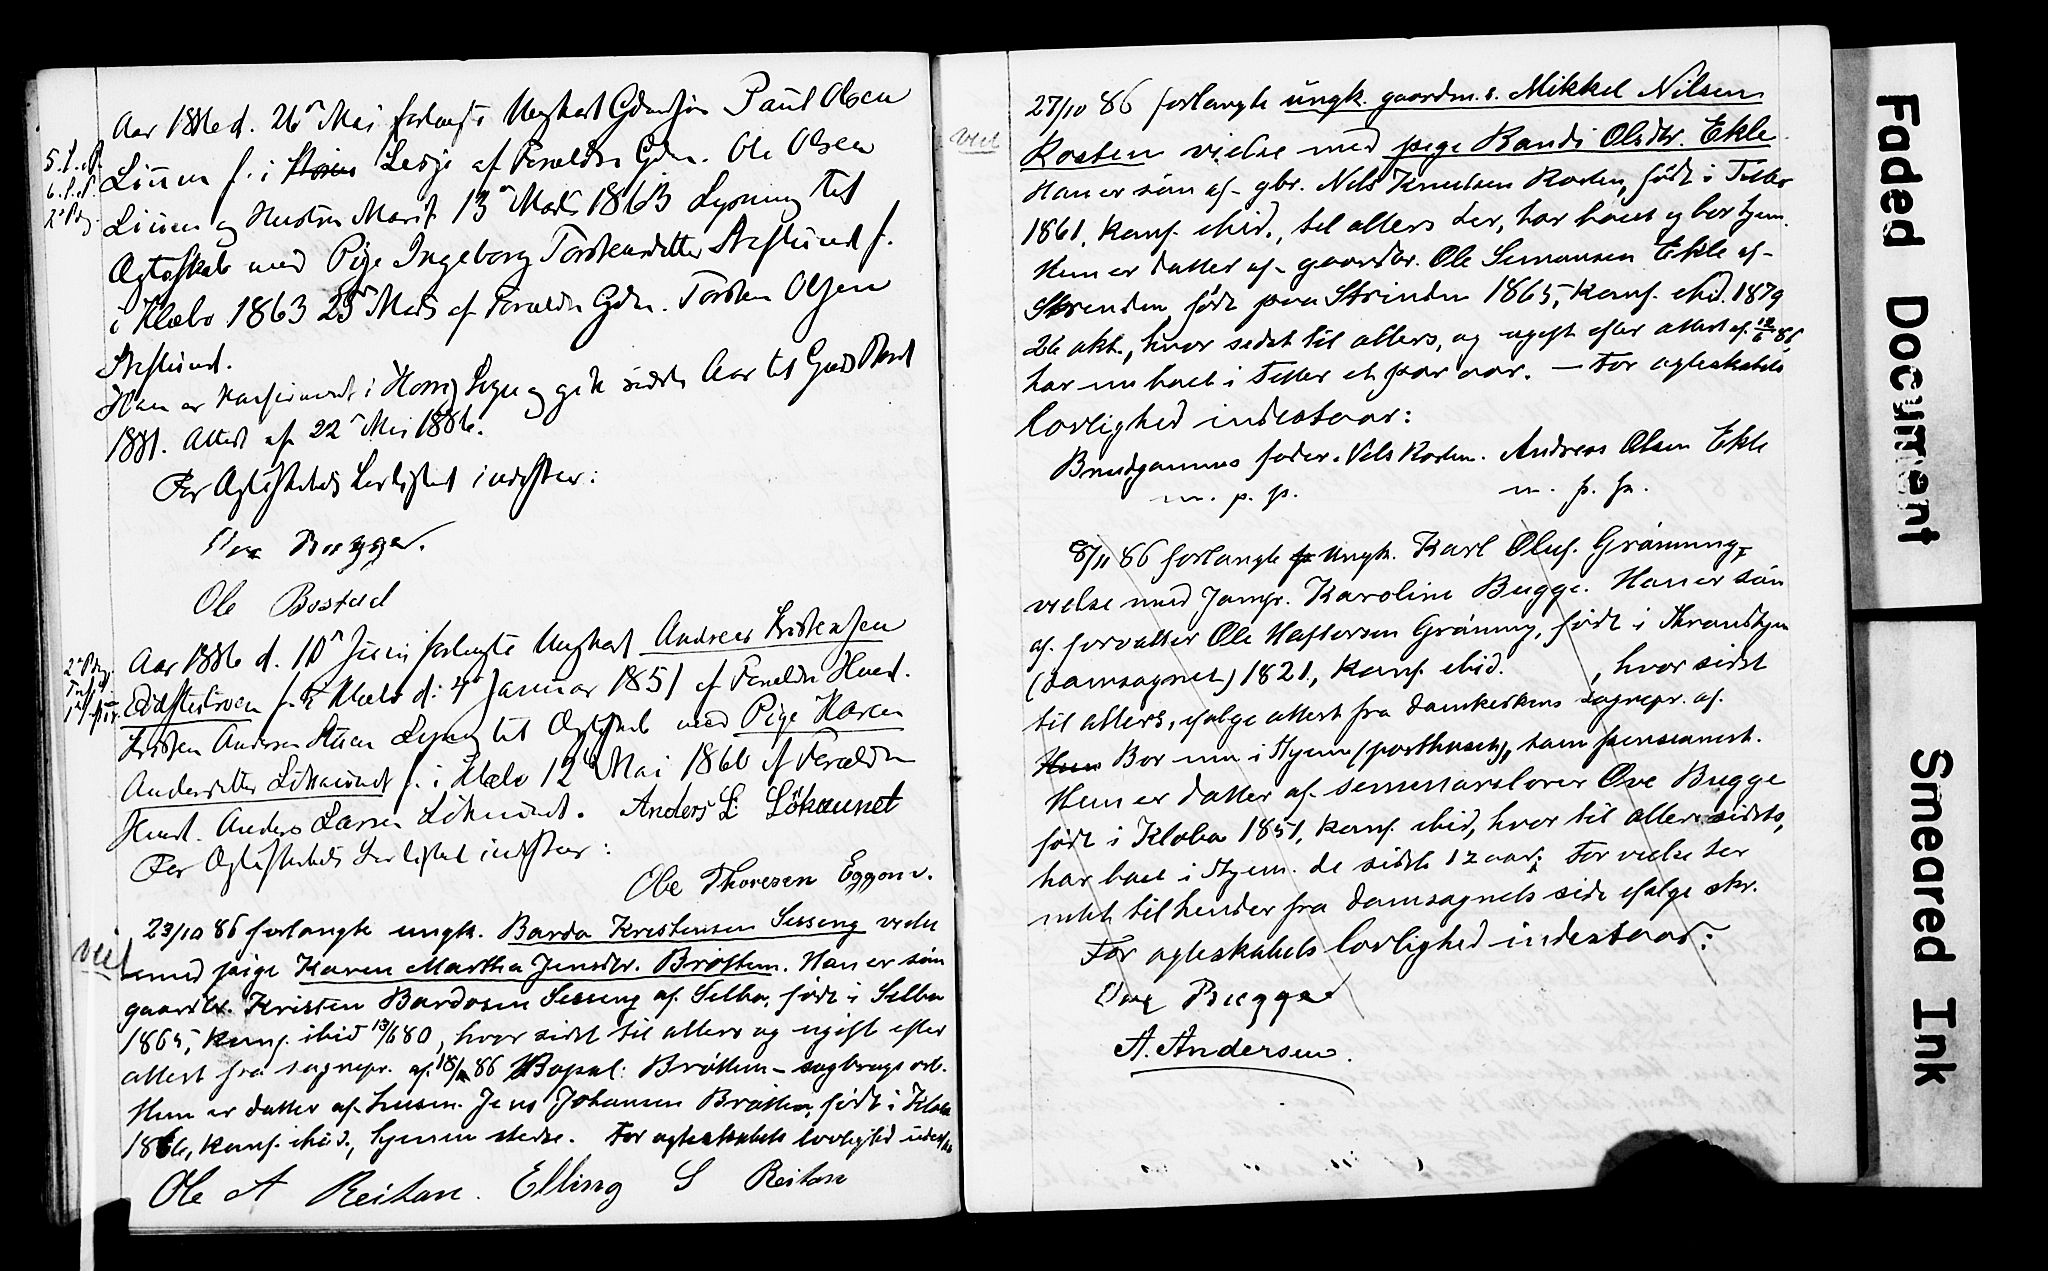 Aar 1886 d. 26n Mai forlangte Ungkarl Gdmssøn Paul Olsen
5. S. e. P.
6. S. e. P.
2n Pdag
Linen f. i Lesje af Forældre Gdm. Ole Olsen
Linen og Hustru Marit 13n Mads 1863 Lysning til
Ægteskab med Pige Ingeborg Torstensdatter f.
i Klæbo 1863 25n Mads af Forældre Gdm. Torsten Olsen
Han er konfirmeret i Horrig Sogn og gik sidste Aar til Guds Bord
1881. Attest af 22n Mai 1886.
For Ægteskabets Lovlighed indestaar:
Ove Bugge.
Ole Bostad
Aar 1886 d. 10n Juni forlangte Ungkarl Andreas Kristensen
2n Pdag
f. i Klæbo d: 4n Januar 1851 af Forældre Husd.
Kristen Andersen Lysning til Ægteskab med Pige Karen
Andersdatter Løkaunet f. i Klæbo 12n Mai 1860 af Forældre
Husd. Anders Larsen Løkaunet. Anders L: Lökaunet
For Ægteskabets Lovlighed indestaar:
Ole Thoresen Eggen v.
viet
23/10 86 forlangte ungk. Bardo Kristensen Sesseng vielse
med pige Karen Martha Jensdtr. Brøttem. Han er søn
gaardbr. Kristen Bardosen Sesseng af Selbo, født i Selbo
1865, konf. ibid 13/6 80, hvor sidst til alters og ugift efter
attest fra sognepr. af 18/ 86 Bopæl: Brøttem – sagbrugsarb.
Hun er datter af husm. Jens Johansen Brøttem, født i Klæbo
1866, konf. ibid., hjemme stedse. For ægteskabets lovlighed indestaa
Ole A Reitan. Elling S Reitan
27/10 86 forlangte ungk. gaardm.s. Mikkel Nilsen
viet
Rosten vielse med pige Randi Olsdtr. Ekle.
Han er søn af gbr. Nils Knudsen Rosten, født i Tiller
1861, konf. ibid., til alters der, har boet og bor hjem.
Hun er datter af gaardbr. Ole Simonsen Ekle af
Strinden, født paa Strinden 1865, konf. ibid. 1879
26 okt., hvor sidst til alters, og ugift efter attest af 12/6 86
har nu boet i Tiller et par aar. — For ægteskabets
lovlighed indestaar:
Brudgommens fader. Nils Rosten. Andreas Olsen Ekle
m. p. p. m. p. p.
8/11 86 forlangte Ungk. Karl Oluf Grønning
vielse med Jomfr. Karoline Bugge. Han er søn
af forvalter Ole Grønning, født i Throndhjem
(domsognet) 1821, konf. ibid. , hvor sidst
til alters, ifølge attest fra domkirkens sognepr. af.
Hun Bor nu i Hjem (posthuset), som pensionist.
Hun er datter af seminarlærer Ove Bugge
født i Klæbo 1851, konf. ibid, hvor til alters sidst,
har boet i Hjem. de sidste 12 aar; For vielse der
intet til hinder fra domsognets side ifølge skr.
For ægteskabets lovlighed indestaar:
Ove Bugge
A. Andersen.
Faded Document
Smeared Ink